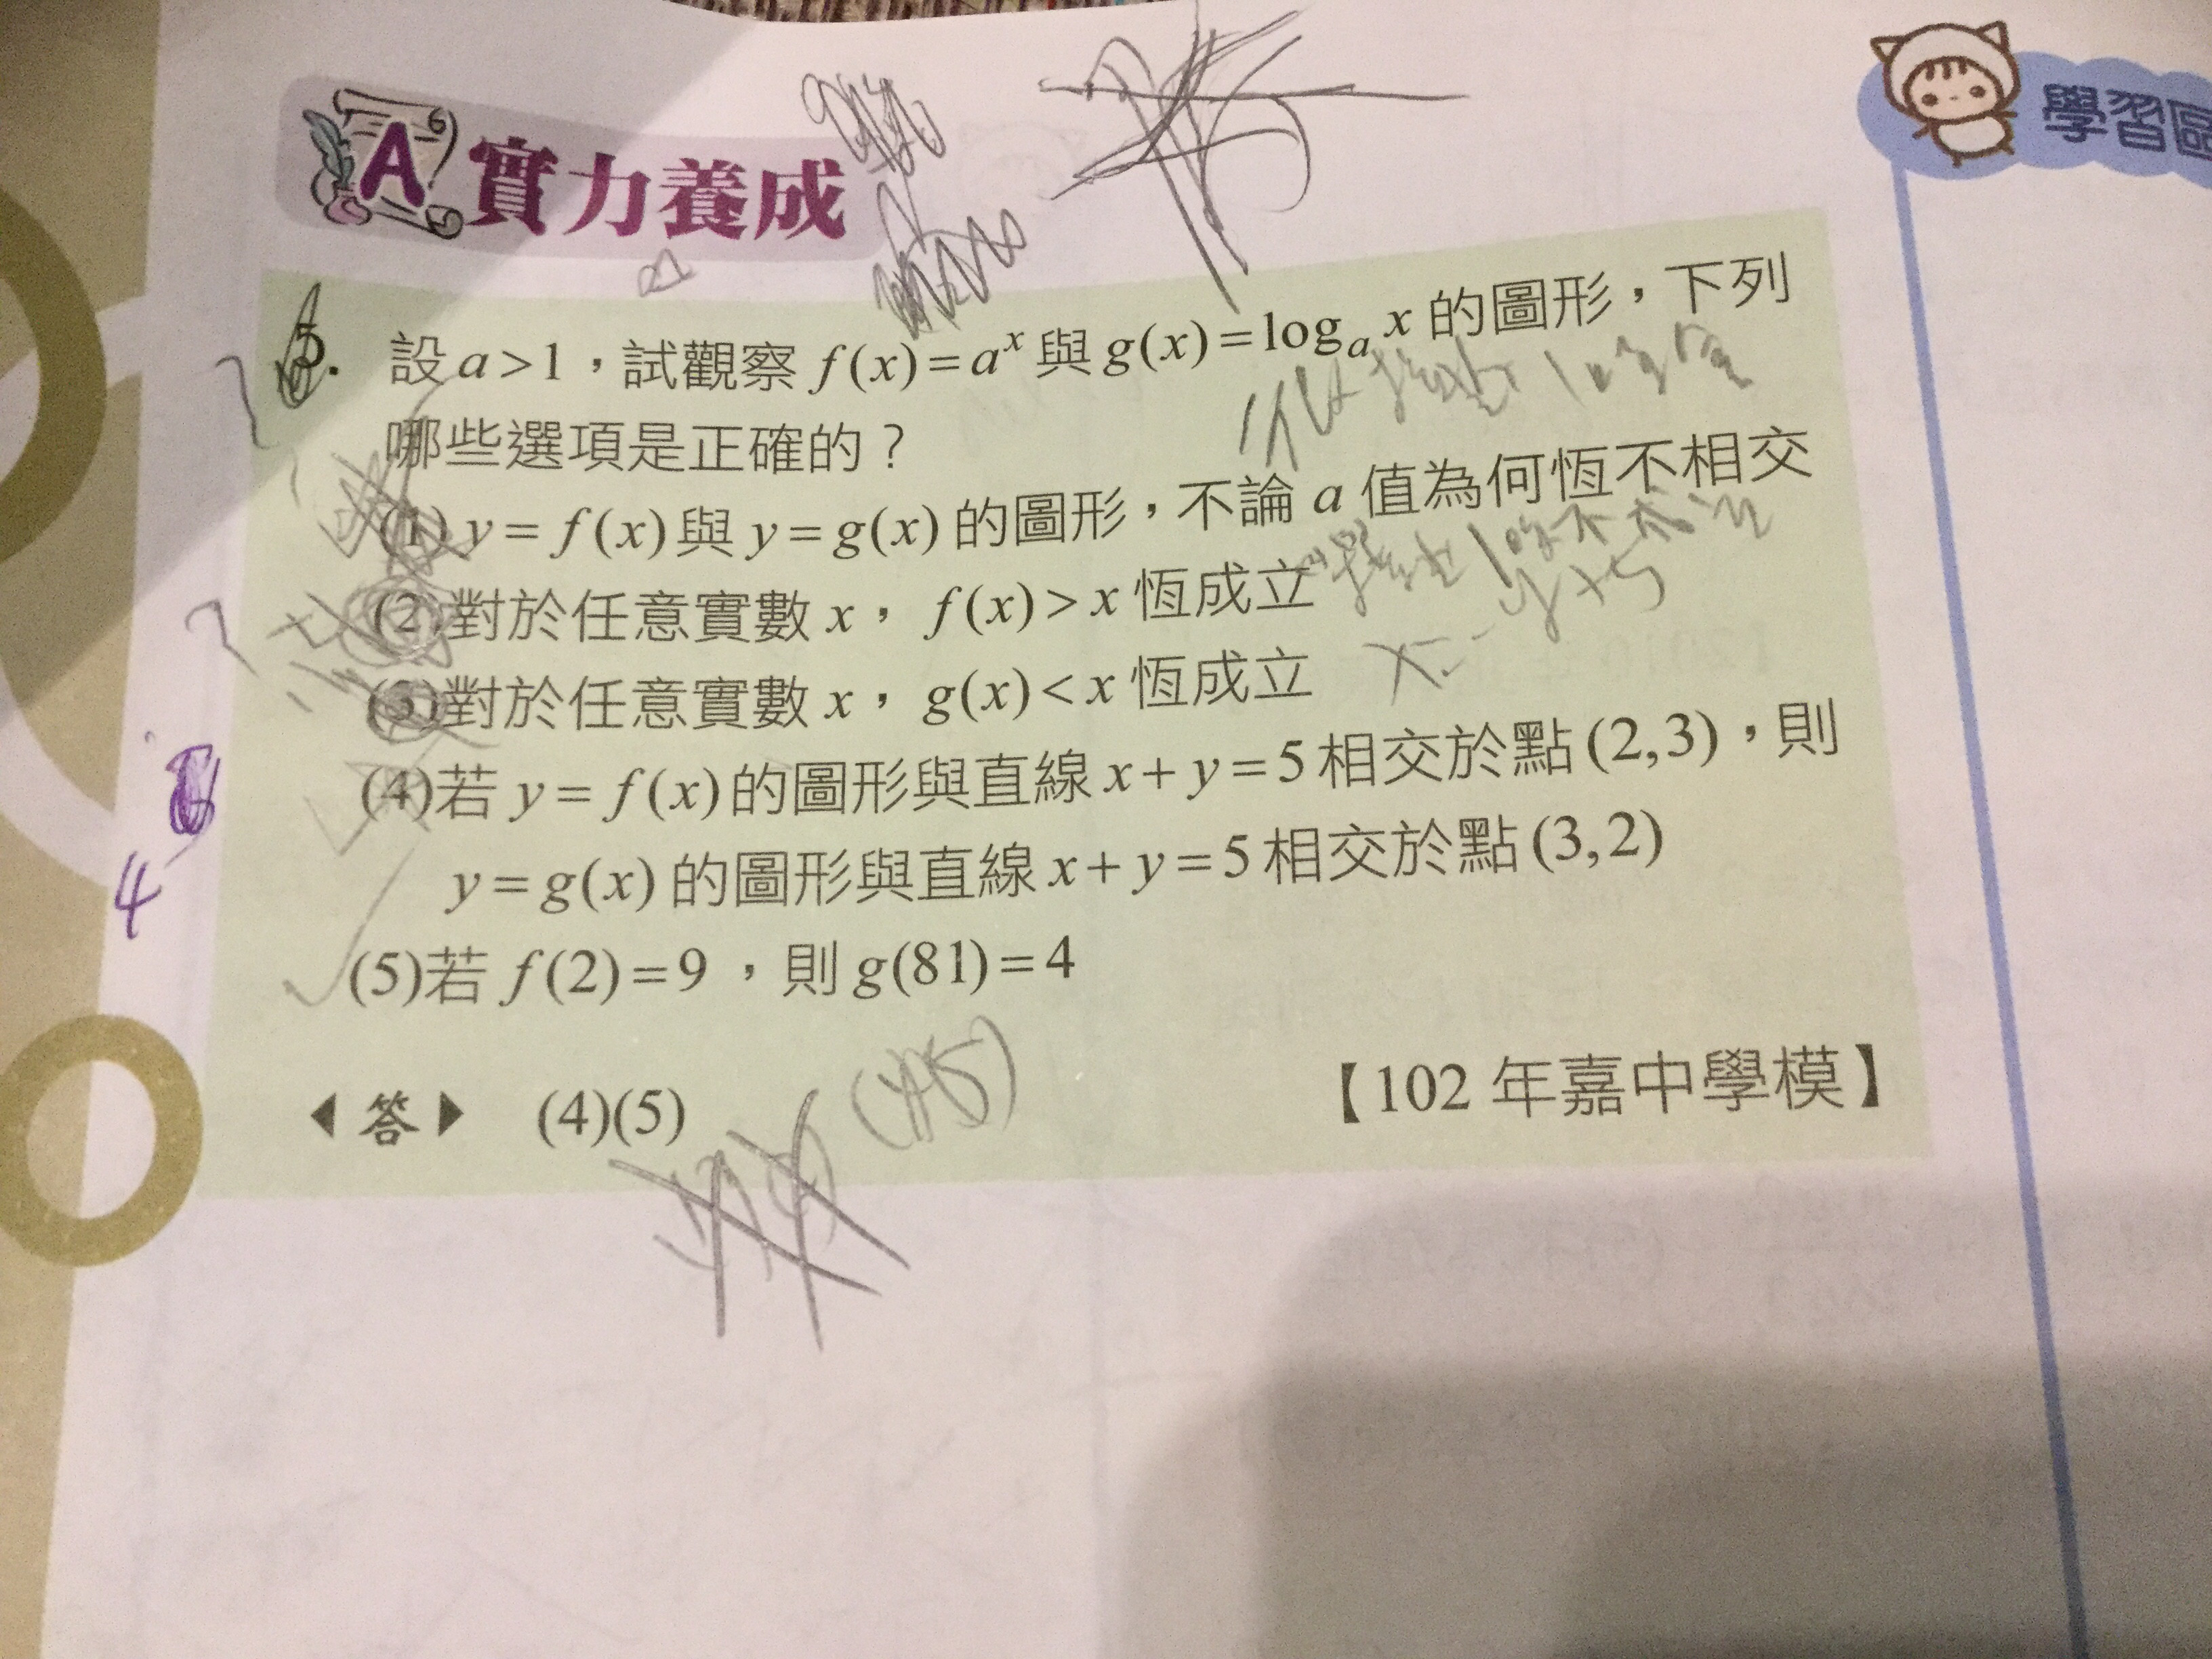 A 實力養成
學習區
5. 設 a>1，試觀察 f(x)=aˣ 與 g(x)=logₐ x 的圖形，下列
哪些選項是正確的？
(1) y=f(x) 與 y=g(x) 的圖形，不論 a 值為何恆不相交
(2) 對於任意實數 x， f(x)>x 恆成立
(3) 對於任意實數 x， g(x)<x 恆成立
(4) 若 y=f(x) 的圖形與直線 x+y=5 相交於點 (2,3)，則
y=g(x) 的圖形與直線 x+y=5 相交於點 (3,2)
4
(5) 若 f(2)=9 ，則 g(81)=4
◀答▶ (4)(5)
【102 年嘉中學模】